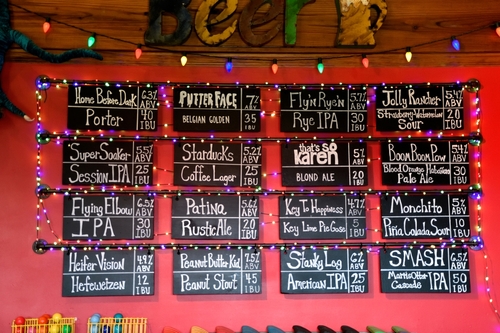 Beer
Home Before Dark 6.3% ABV
Porter 40 IBU
PUTTER FACE ABV
BELGIAN GOLDEN 35 IBU
Flyn Rye'n ABV
Rye IPA 30 IBU
Jolly Rancher ABV
Strawberry-Watermelon
Sour 20 IBU
Super Soaker ABV
Session IPA 25 IBU
Starducks 5.2% ABV
Coffee Lager 25 IBU
that's SO
KAREN 5% ABV
BLOND ALE 20 IBU
Boom Boom Pow ABV
Blood Orange Habanero
Pale Ale 30 IBU
Flying Elbow ABV
IPA 30 IBU
Patina ABV
Rustic Ale 20 IBU
Key To Happiness ABV
Key Lime Pie Gose 5 IBU
Monchito 5% ABV
Piña Colada Sour 10 IBU
Heifer Vision ABV
Hefeweizen IBU
Peanut Butta Kid ABV
Peanut Stout IBU
Stanky Leg ABV
American IPA IBU
SMASH ABV
Marris Otter
Cascade IPA 50 IBU